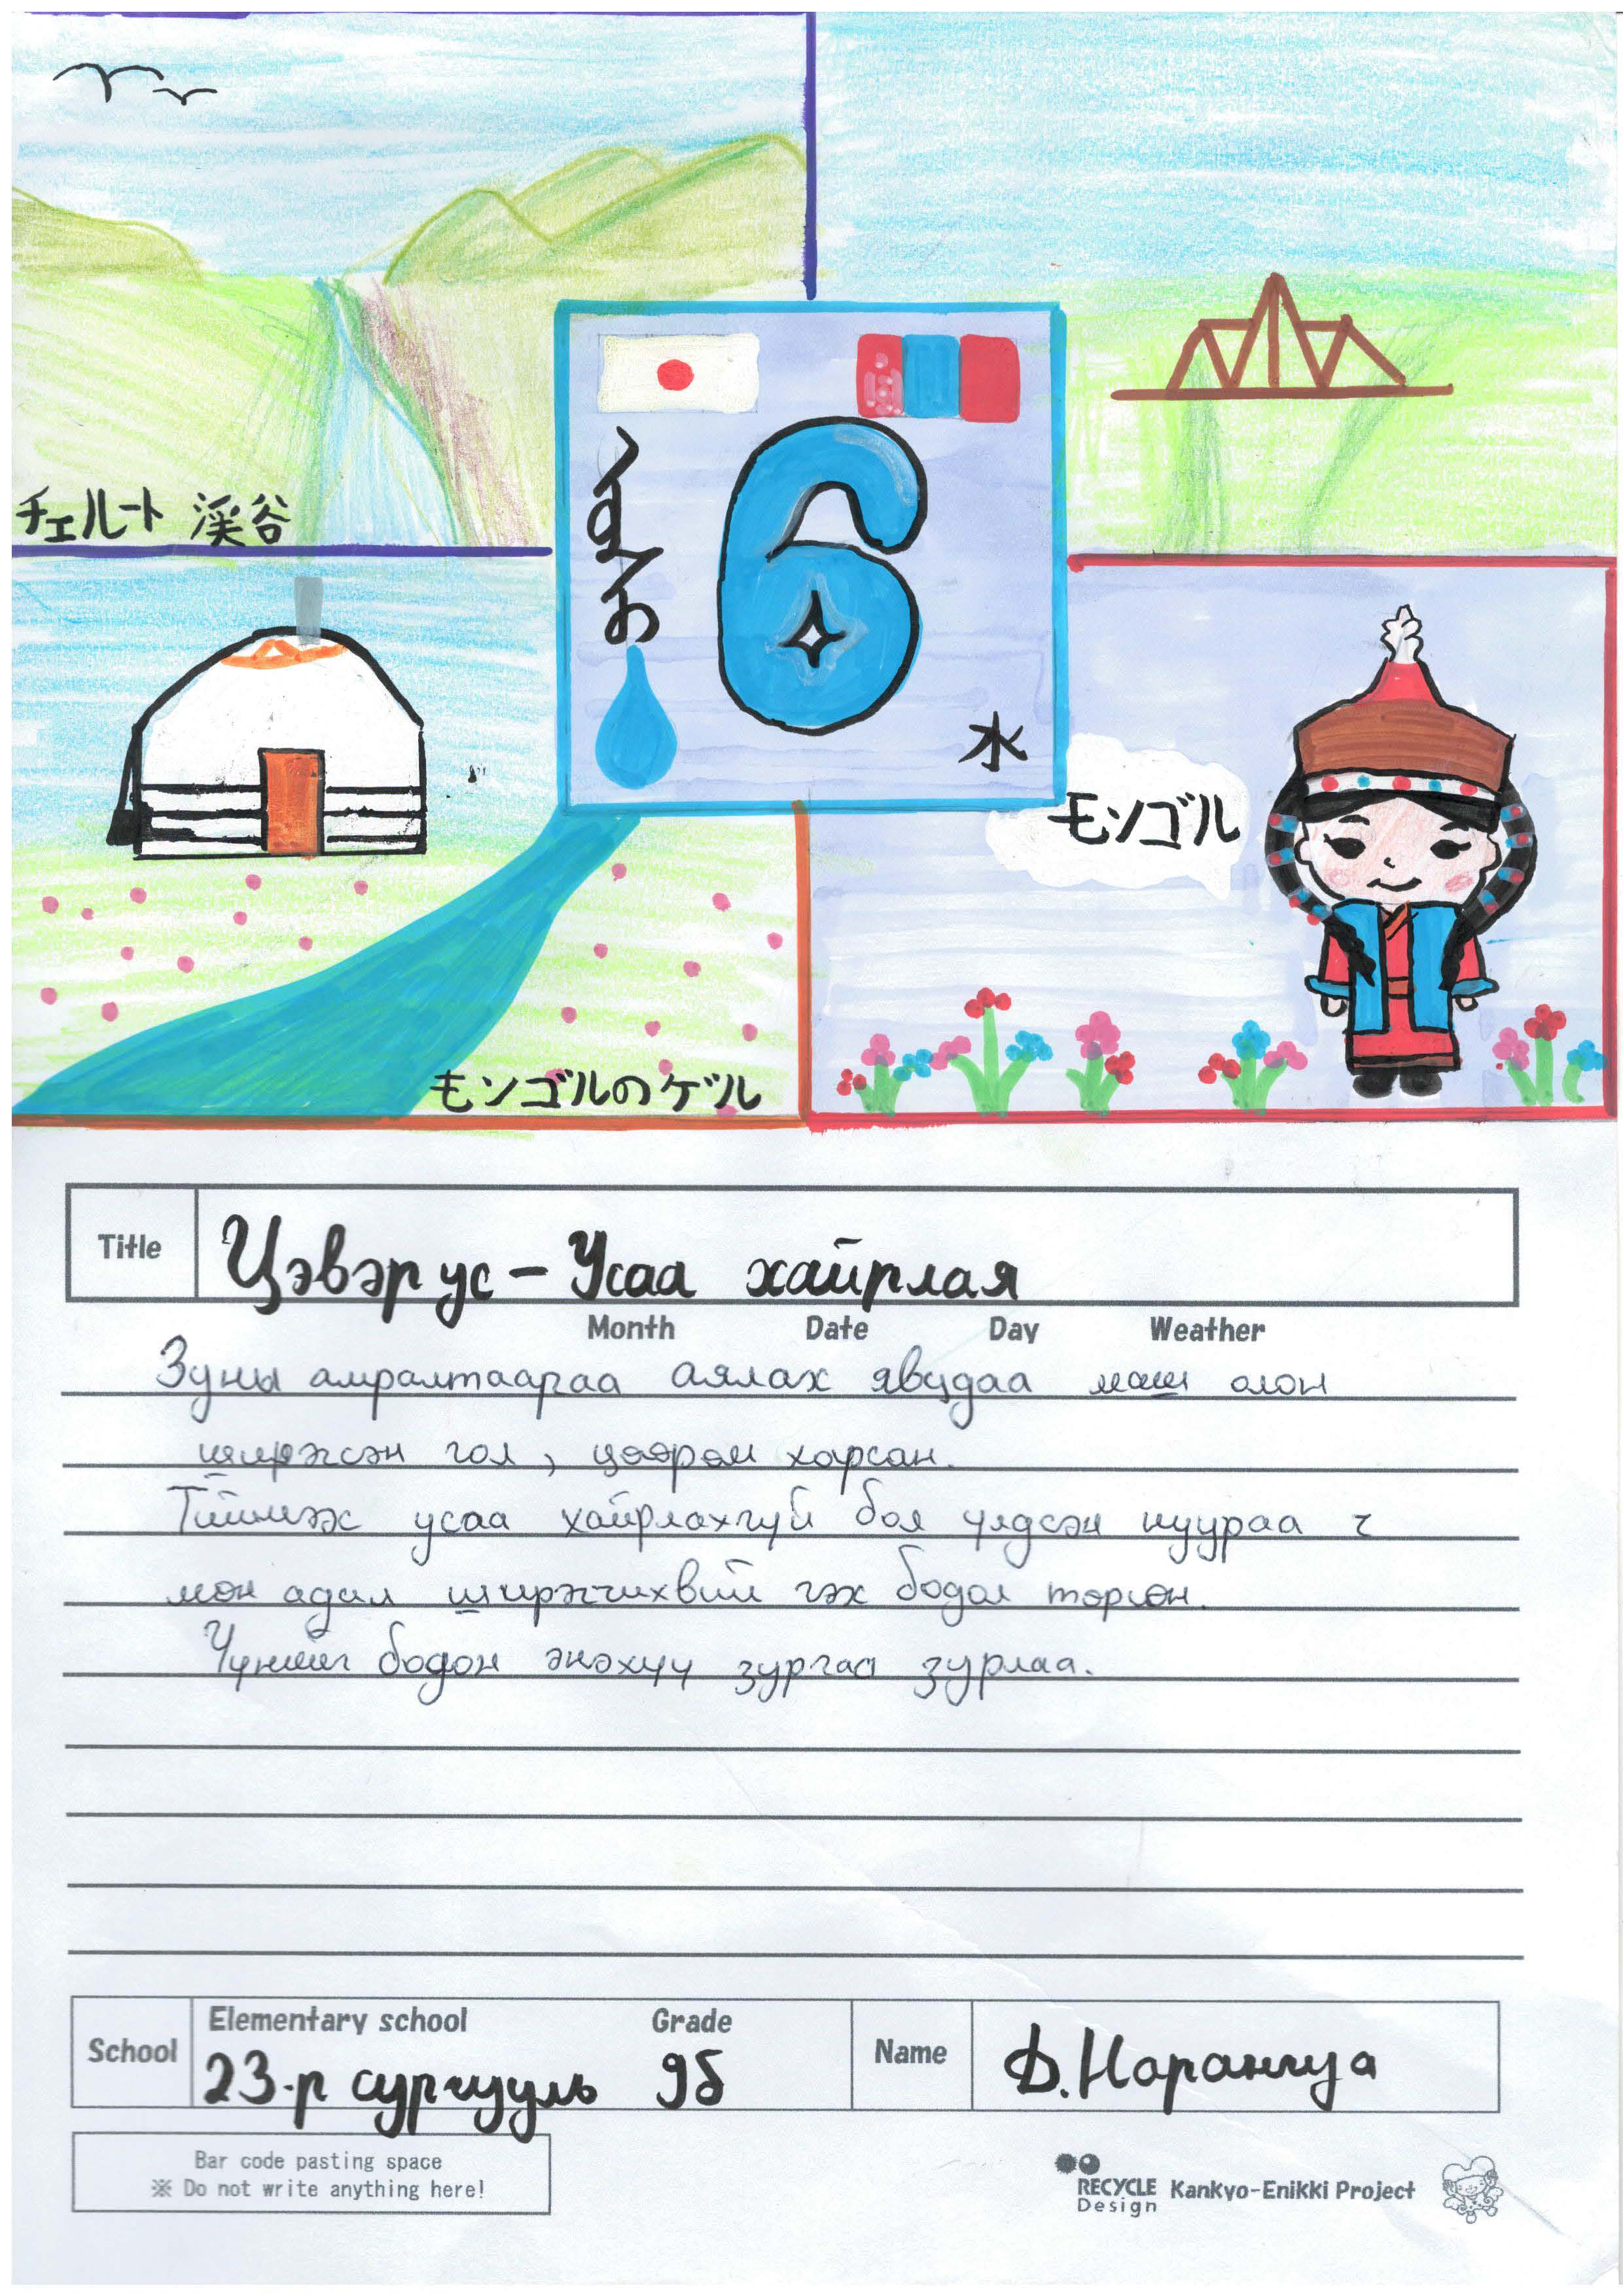 チェルート 渓谷
6
水
モンゴル
モンゴルのゲル
Title
Цэвэр ус – Усаа хайрлая
Month Date Day Weather
Зуны амралтаараа аялах явцдаа маш олон
ширгэсэн гол, цөөрөм харсан.
Тиймээс усаа хайрлахгүй бол үлдсэн нуураа ч
мөн адил ширгэчихвий гэх бодол төрсөн.
Үүнийг бодон энэхүү зургаа зурлаа.
School
Elementary school Grade
23-р сургууль 9б
Name
Д.Нарангуа
Bar code pasting space
※ Do not write anything here!
RECYCLE
Design
Kankyo-Enikki Project